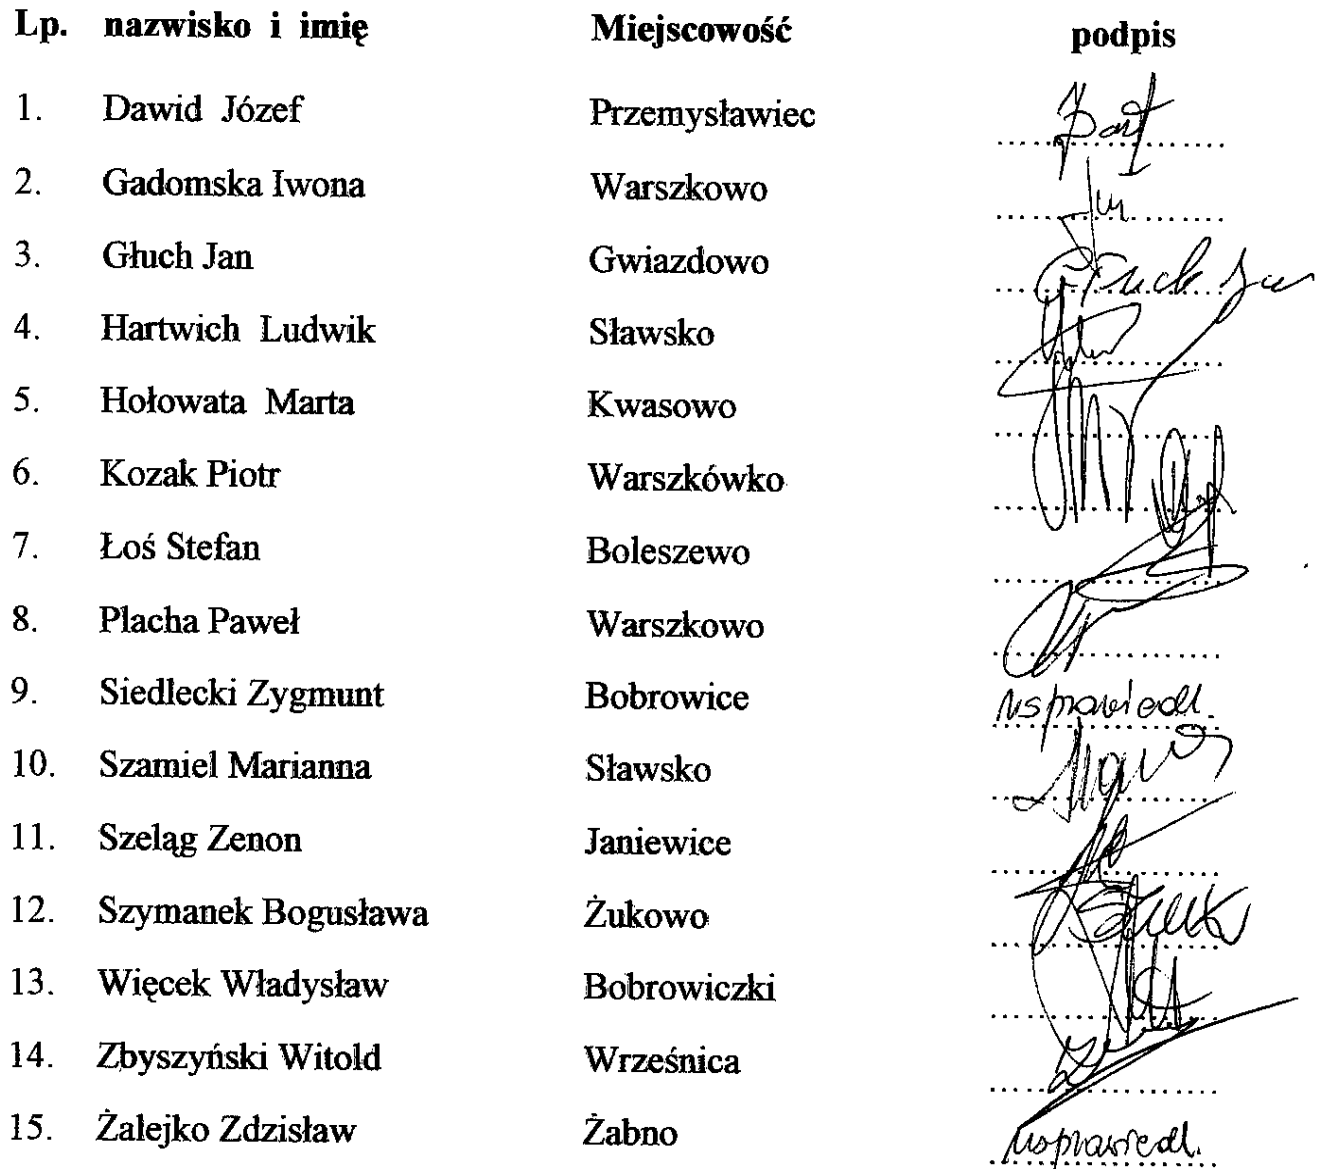 Lp. nazwisko i imię Miejscowość podpis
1. Dawid Józef Przemysławiec
2. Gadomska Iwona Warszkowo
3. Głuch Jan Gwiazdowo
4. Hartwich Ludwik Sławsko
5. Hołowata Marta Kwasowo
6. Kozak Piotr Warszkówko
7. Łoś Stefan Boleszewo
8. Placha Paweł Warszkowo
9. Siedlecki Zygmunt Bobrowice usprawiedl.
10. Szamiel Marianna Sławsko
11. Szeląg Zenon Janiewice
12. Szymanek Bogusława Żukowo
13. Więcek Władysław Bobrowiczki
14. Zbyszyński Witold Wrześnica
15. Żalejko Zdzisław Żabno usprawiedl.